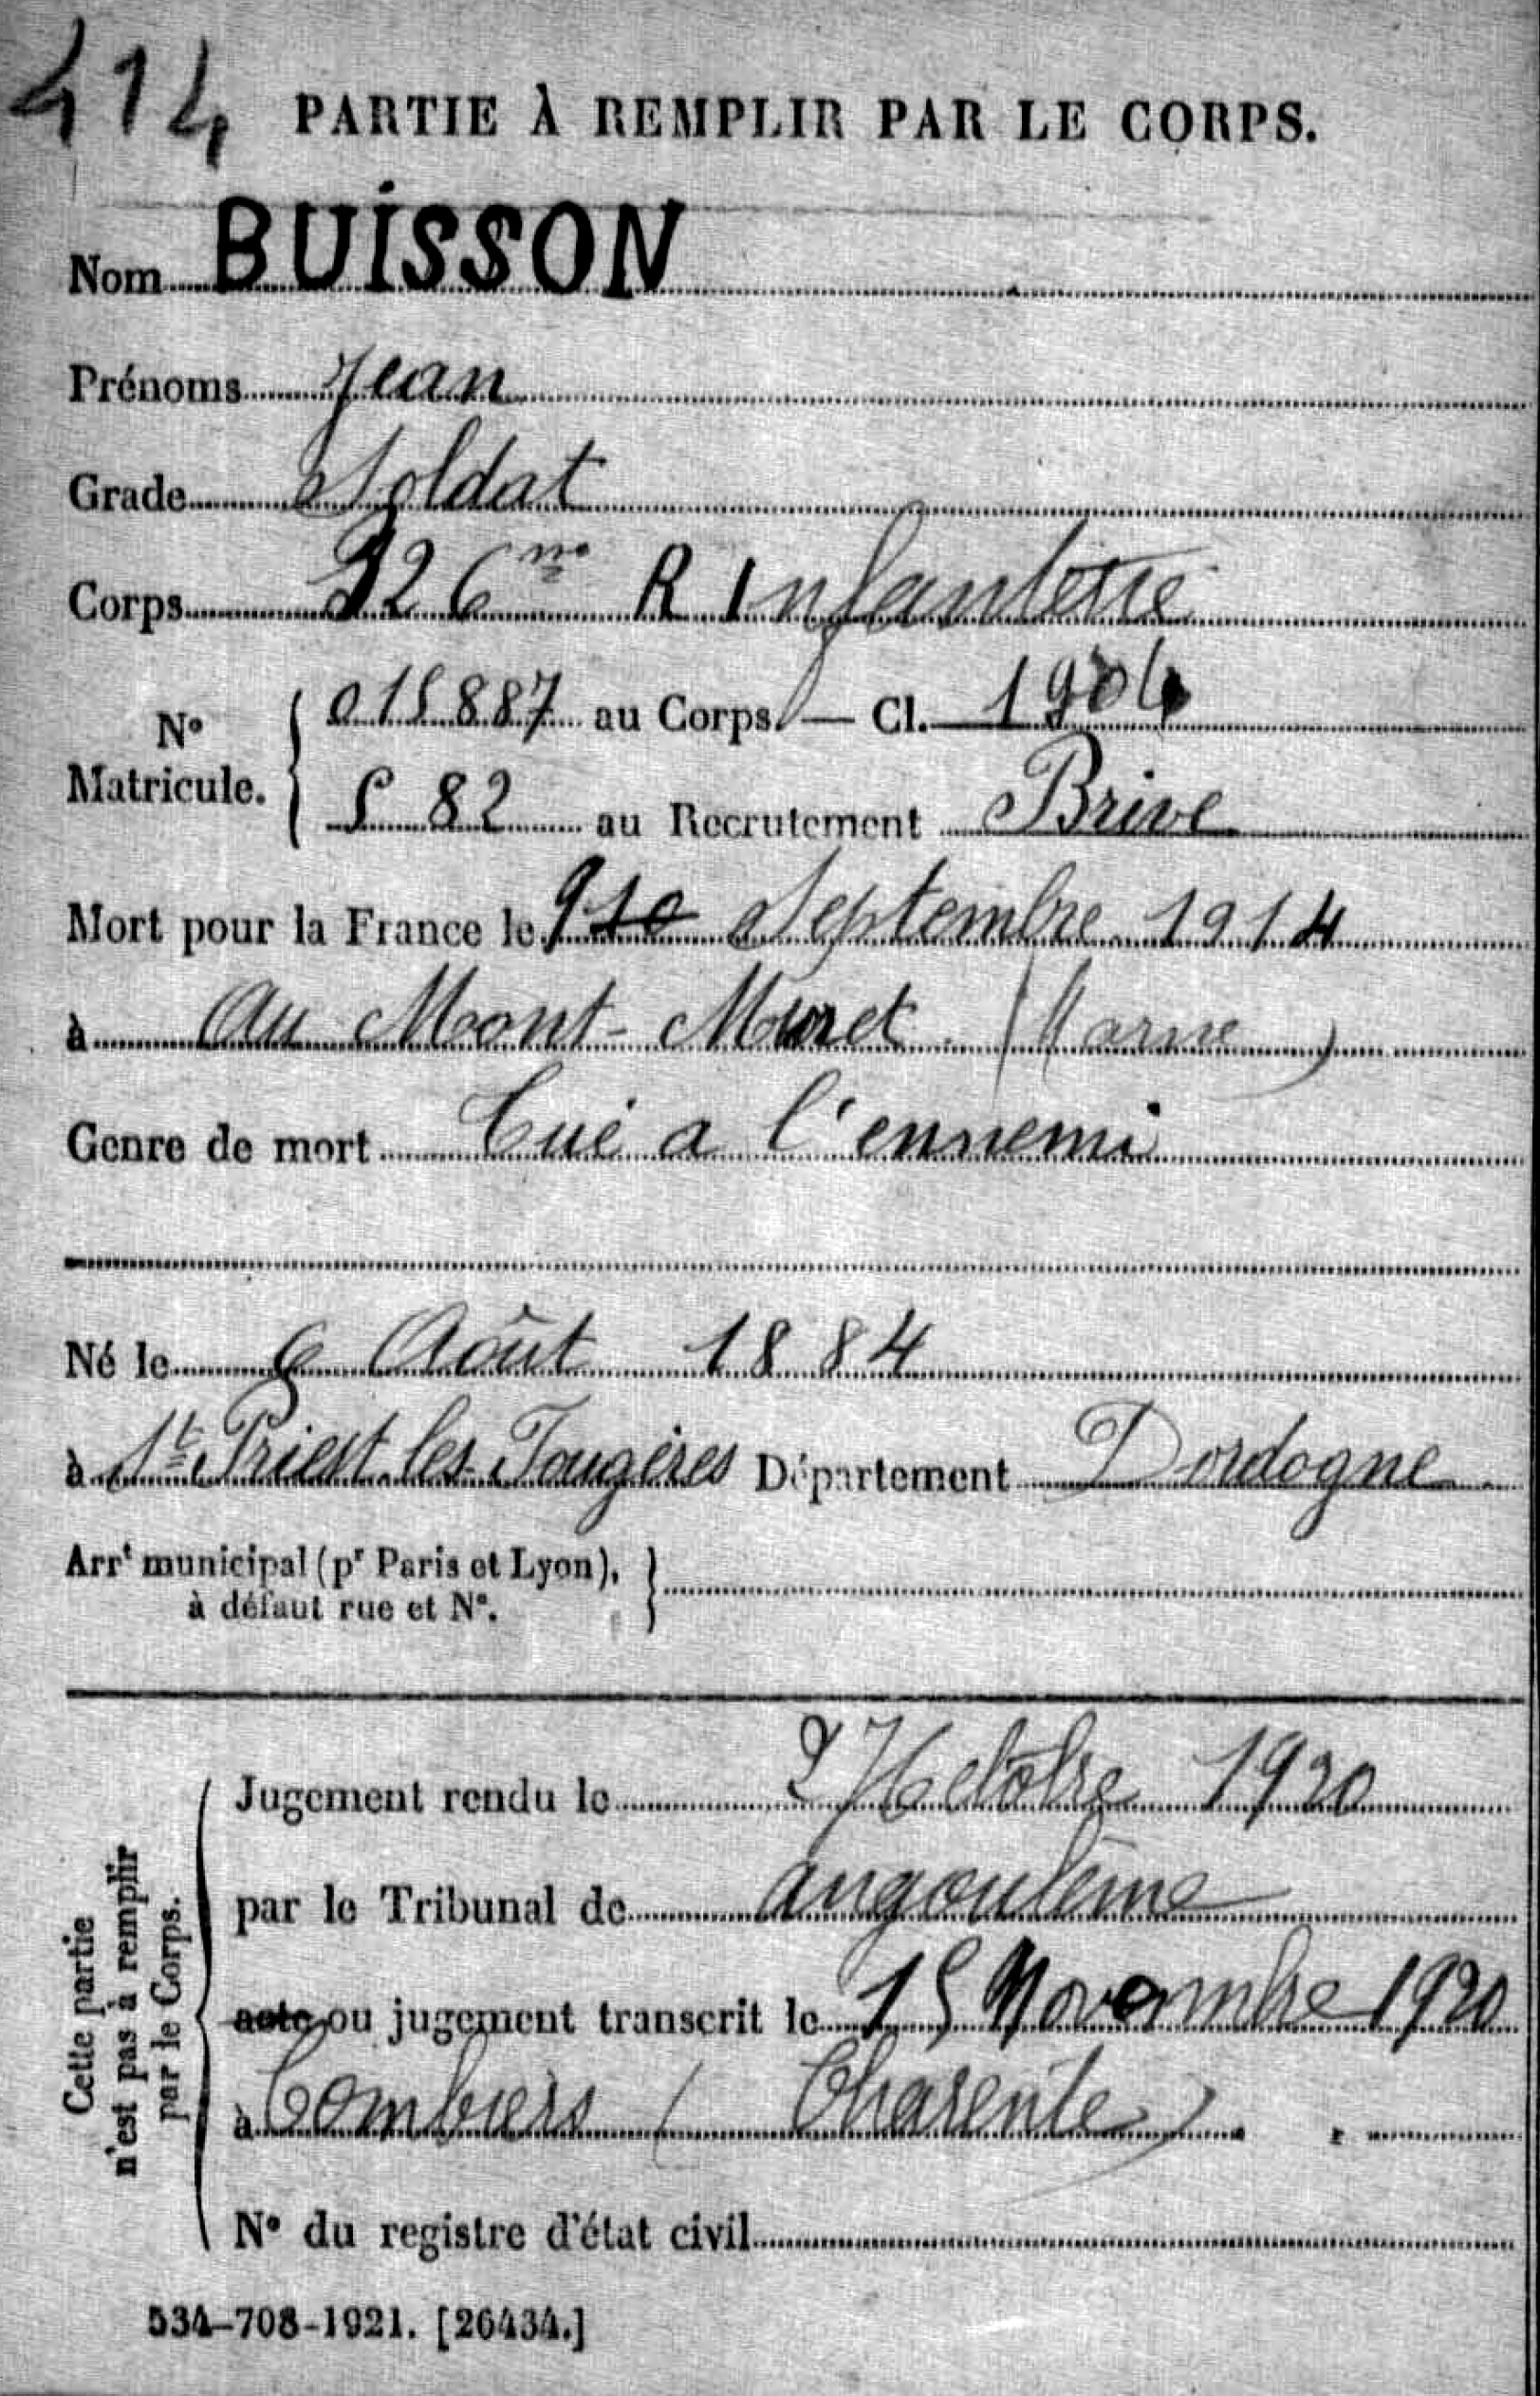 414
PARTIE À REMPLIR PAR LE CORPS.
Nom BUISSON
Prénoms Jean
Grade Soldat
Corps 326me R Infanterie
N° Matricule. { 015887 au Corps. — Cl. 1904
582 au Recrutement Brive
Mort pour la France le 9 10 Septembre 1914
à au Mont-Muret (Marne)
Genre de mort Tué a l'ennemi
Né le 6 Août 1884
à St Priest les Fougères Département Dordogne
Arrt municipal (pr Paris et Lyon),
à défaut rue et N°. }
Cette partie
n'est pas à remplir
par le Corps.
Jugement rendu le 27 Octobre 1920
par le Tribunal de Angoulême
acte ou jugement transcrit le 15 Novembre 1920
à Combiers (Charente)
N° du registre d'état civil
534-708-1921. [26434.]